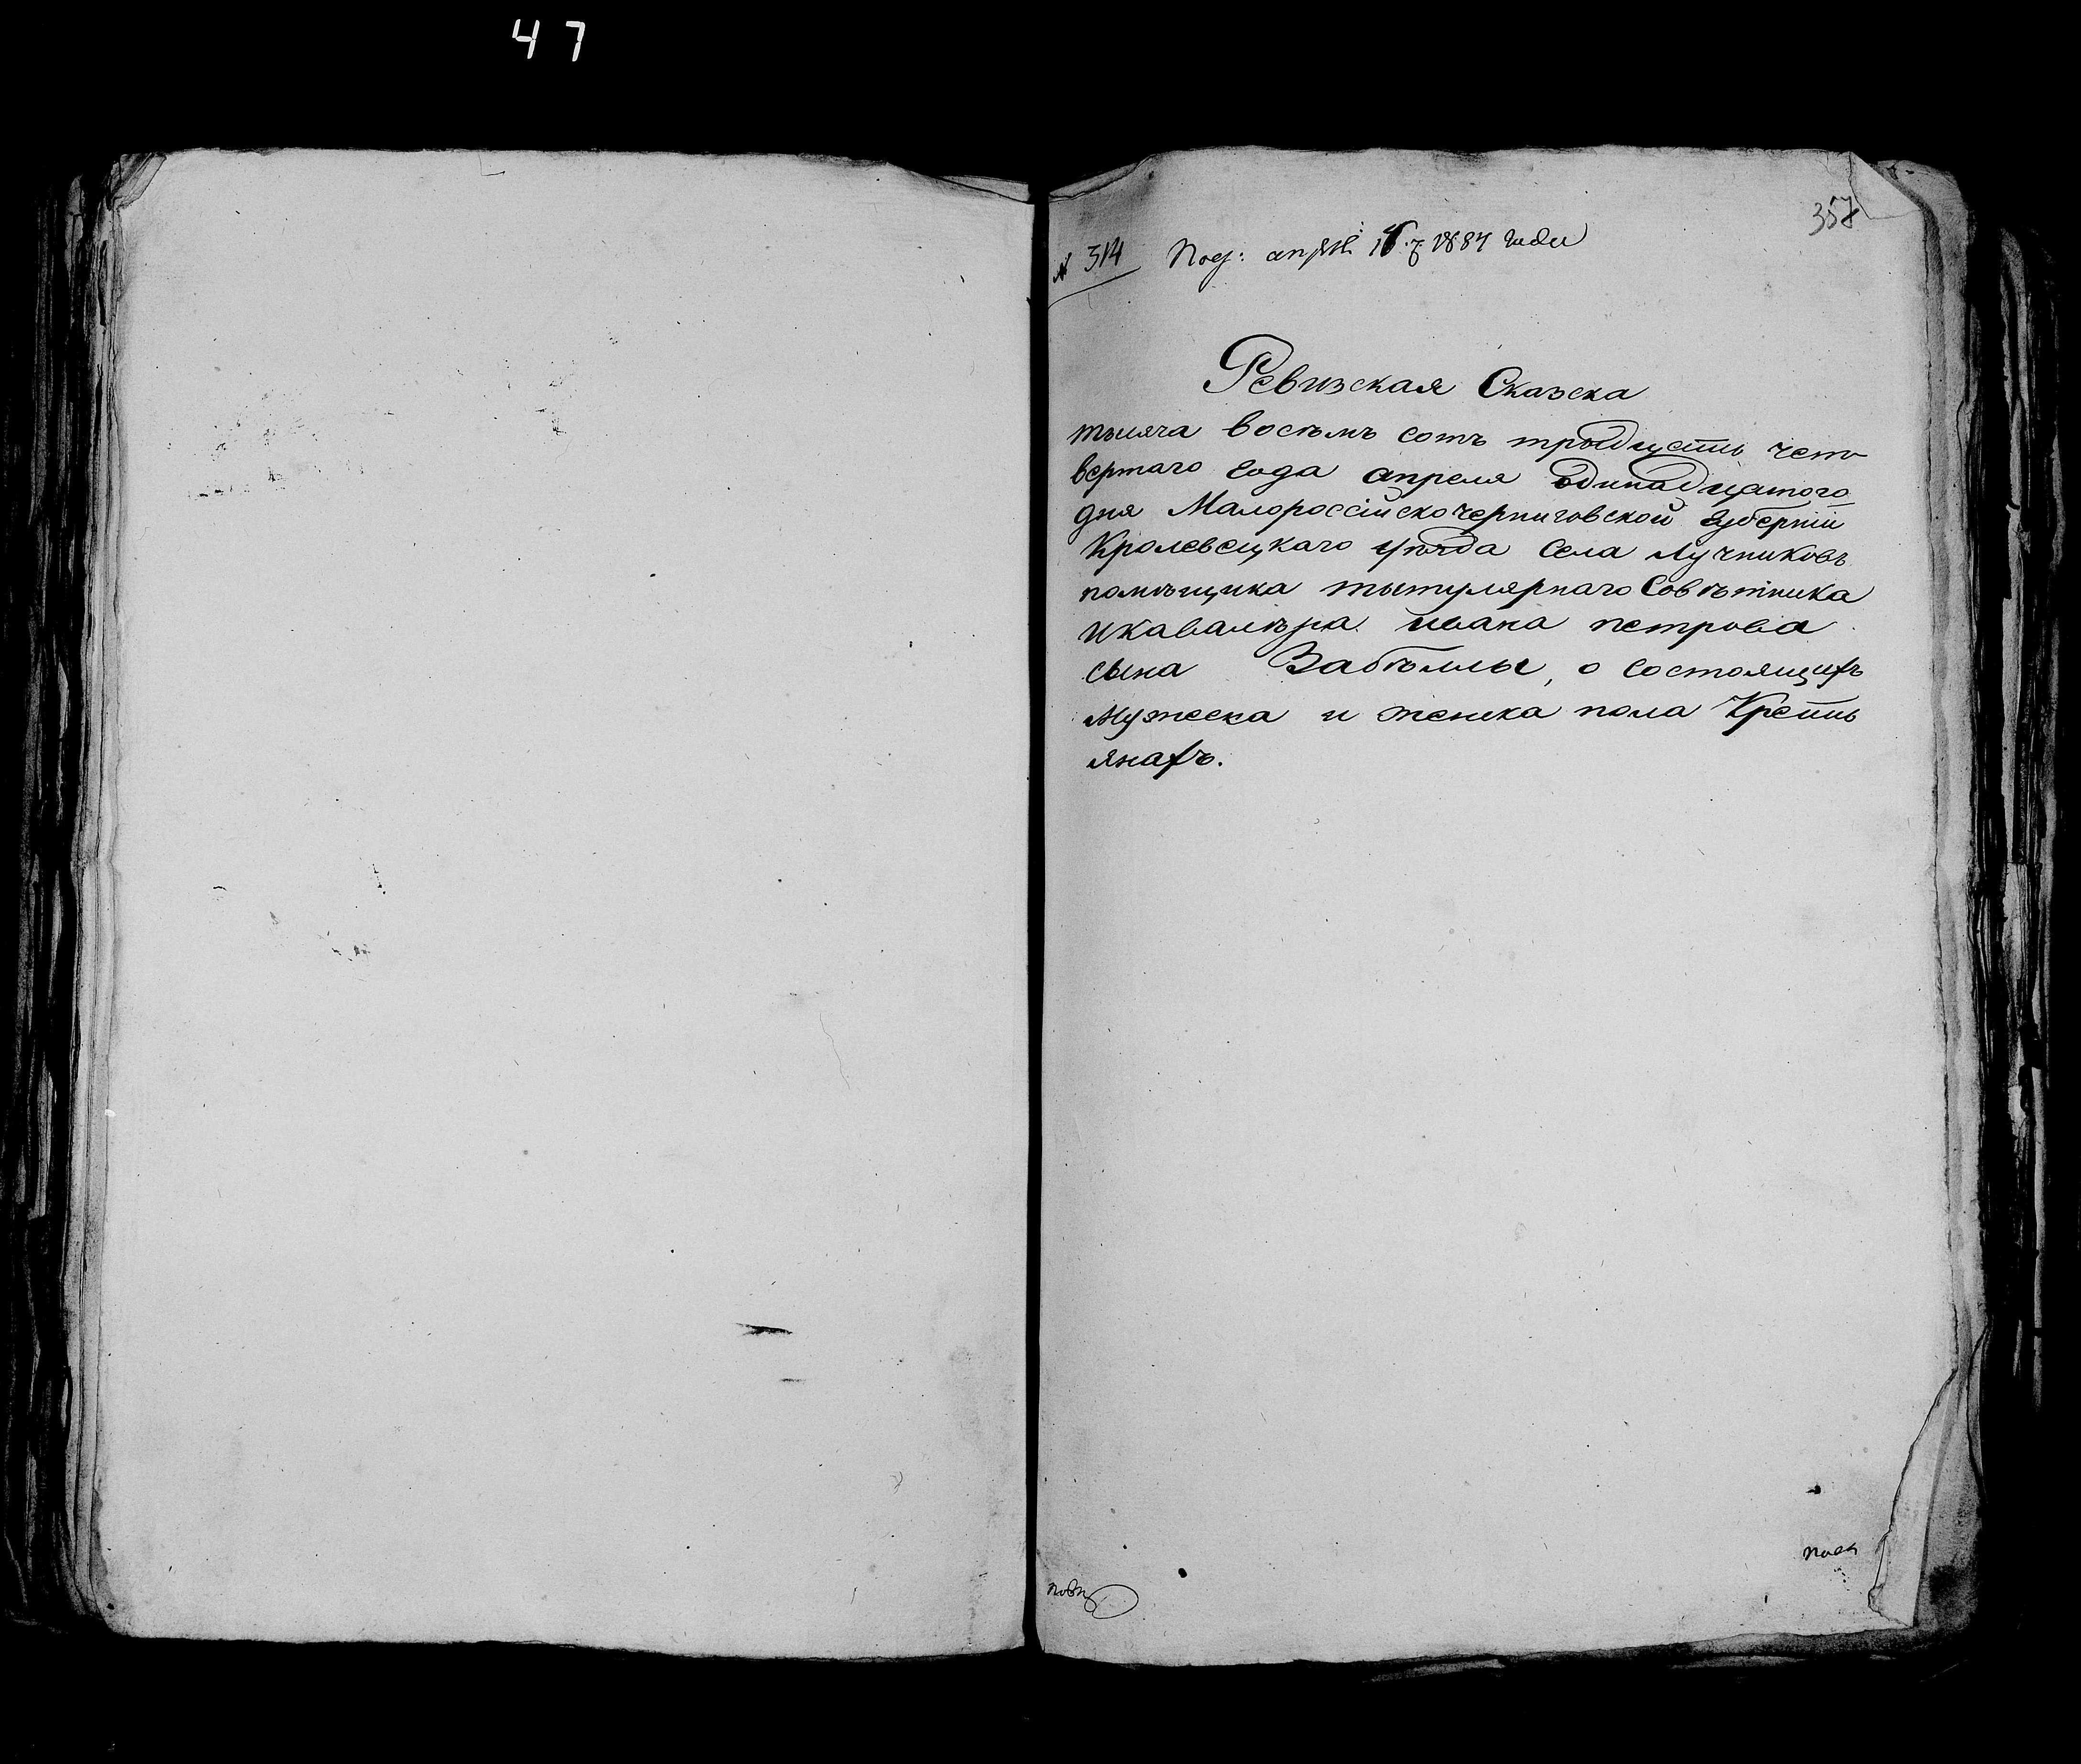 47
357
№ 314 Под: апрѣля 1834 года
Ревизская Сказска
тысяча восемъ сотъ трыдцать чет
вертаго Года апреля Одинадцатого
дня Малороссійскочерниговской Губерніи
Кролевецкаго уѣзда Села Лучниковъ
помѣщика тытулярнаго Совѣтника
икавалѣра ивана петрова
сына Забѣллы, о состоящихъ
Мужеска и женска пола Кресть
янахъ.